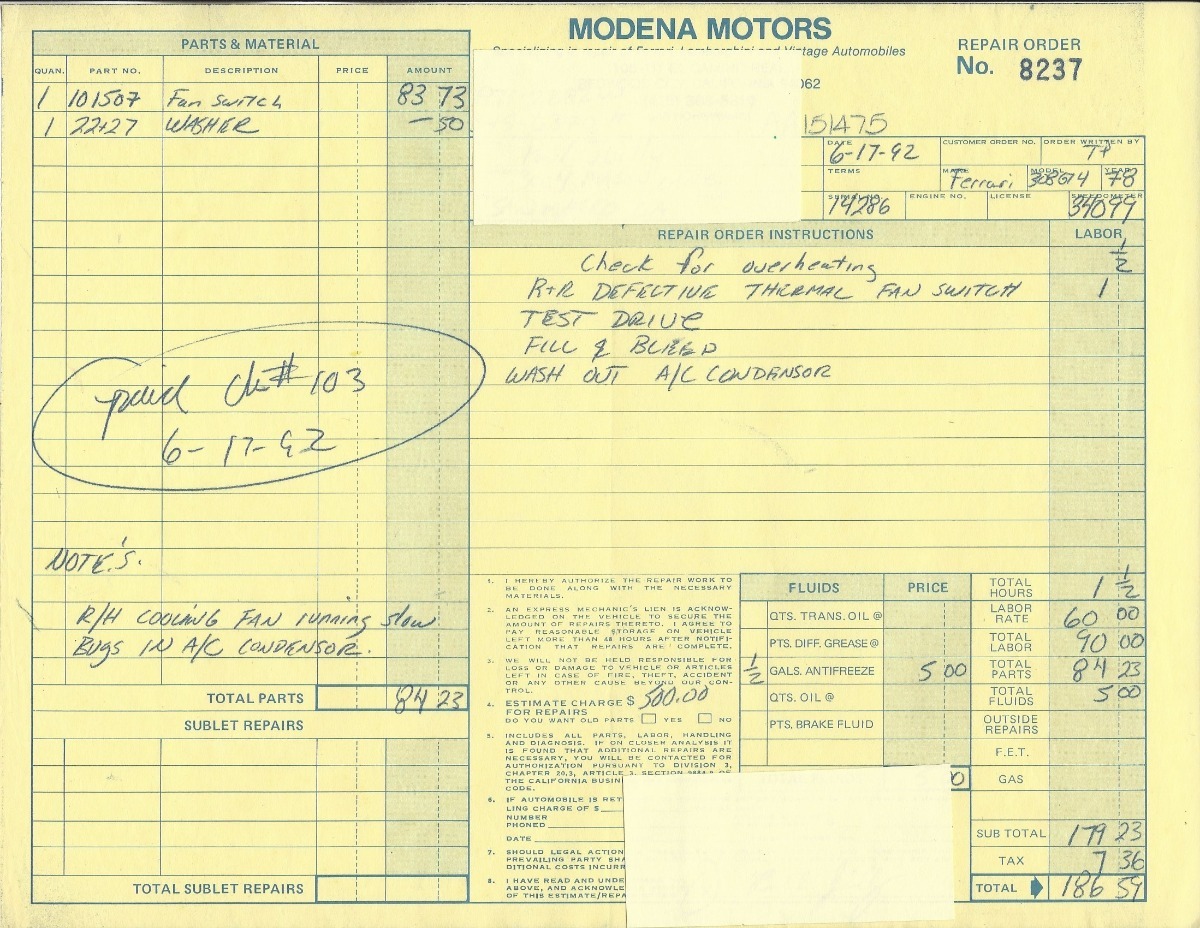 MODENA MOTORS
Specializing in repair of Ferrari, Lamborghini and Vintage Automobiles
062
REPAIR ORDER
No. 8237
151475
DATE 6-17-92 CUSTOMER ORDER NO. ORDER WRITTEN BY TP
TERMS MAKE Ferrari MODEL 308GT4 YEAR 78
SERIAL NO. 14286 ENGINE NO. LICENSE SPEEDOMETER 34099
PARTS & MATERIAL
QUAN. PART NO. DESCRIPTION PRICE AMOUNT
1 101507 Fan switch 83 73
1 WASHER — 50
paid ck# 103
6-17-92
NOTE'S.
R/H COOLING FAN running slow
Bugs IN A/C CONDENSOR.
TOTAL PARTS 84 23
SUBLET REPAIRS
TOTAL SUBLET REPAIRS
REPAIR ORDER INSTRUCTIONS LABOR
Check for overheating 1/2
R+R DEFECTIVE THERMAL FAN SWITCH 1
TEST DRIVE
FILL & BLEED
WASH OUT A/C CONDENSOR
1. I HEREBY AUTHORIZE THE REPAIR WORK TO
BE DONE ALONG WITH THE NECESSARY
MATERIALS.
2. AN EXPRESS MECHANIC'S LIEN IS ACKNOW-
LEDGED ON THE VEHICLE TO SECURE THE
AMOUNT OF REPAIRS THERETO. I AGREE TO
PAY REASONABLE STORAGE ON VEHICLE
LEFT MORE THAN 48 HOURS AFTER NOTIFI-
CATION THAT REPAIRS ARE COMPLETE.
3. WE WILL NOT BE HELD RESPONSIBLE FOR
LOSS OR DAMAGE TO VEHICLE OR ARTICLES
LEFT IN CASE OF FIRE, THEFT, ACCIDENT
OR ANY OTHER CAUSE BEYOND OUR CON-
TROL.
4. ESTIMATE CHARGE $ 500.00
FOR REPAIRS
DO YOU WANT OLD PARTS YES NO
5. INCLUDES ALL PARTS, LABOR, HANDLING
AND DIAGNOSIS. IF ON CLOSER ANALYSIS IT
IS FOUND THAT ADDITIONAL REPAIRS ARE
NECESSARY, YOU WILL BE CONTACTED FOR
AUTHORIZATION PURSUANT TO DIVISION 3,
CHAPTER 20.3, ARTICLE 3, SECTION OF
THE CALIFORNIA BUSIN
CODE.
6. IF AUTOMOBILE IS RET
LING CHARGE OF $
NUMBER
PHONED
DATE
7. SHOULD LEGAL ACTION
PREVAILING PARTY SHA
DITIONAL COSTS INCURR
8. I HAVE READ AND UNDE
ABOVE, AND ACKNOWLE
OF THIS ESTIMATE/REPA
FLUIDS PRICE
QTS. TRANS. OIL @
PTS. DIFF. GREASE @
1/2 GALS. ANTIFREEZE 5 00
QTS. OIL @
PTS. BRAKE FLUID
0
TOTAL HOURS 1 1/2
LABOR RATE 60 00
TOTAL LABOR 90 00
TOTAL PARTS 84 23
TOTAL FLUIDS 5 00
OUTSIDE REPAIRS
F.E.T.
GAS
SUB TOTAL 179 23
TAX 7 36
TOTAL 186 59